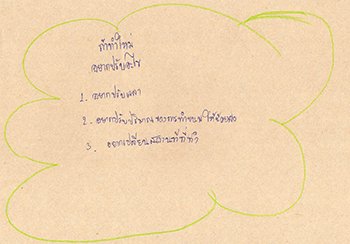 ถ้าทำใหม่
อยากปรับอะไร
1. อยากปรับเวลา
2. อยากปรับปริมาณของการทำขนมให้น้อยลง
3. อยากเปลี่ยนสถานที่ที่ทำ